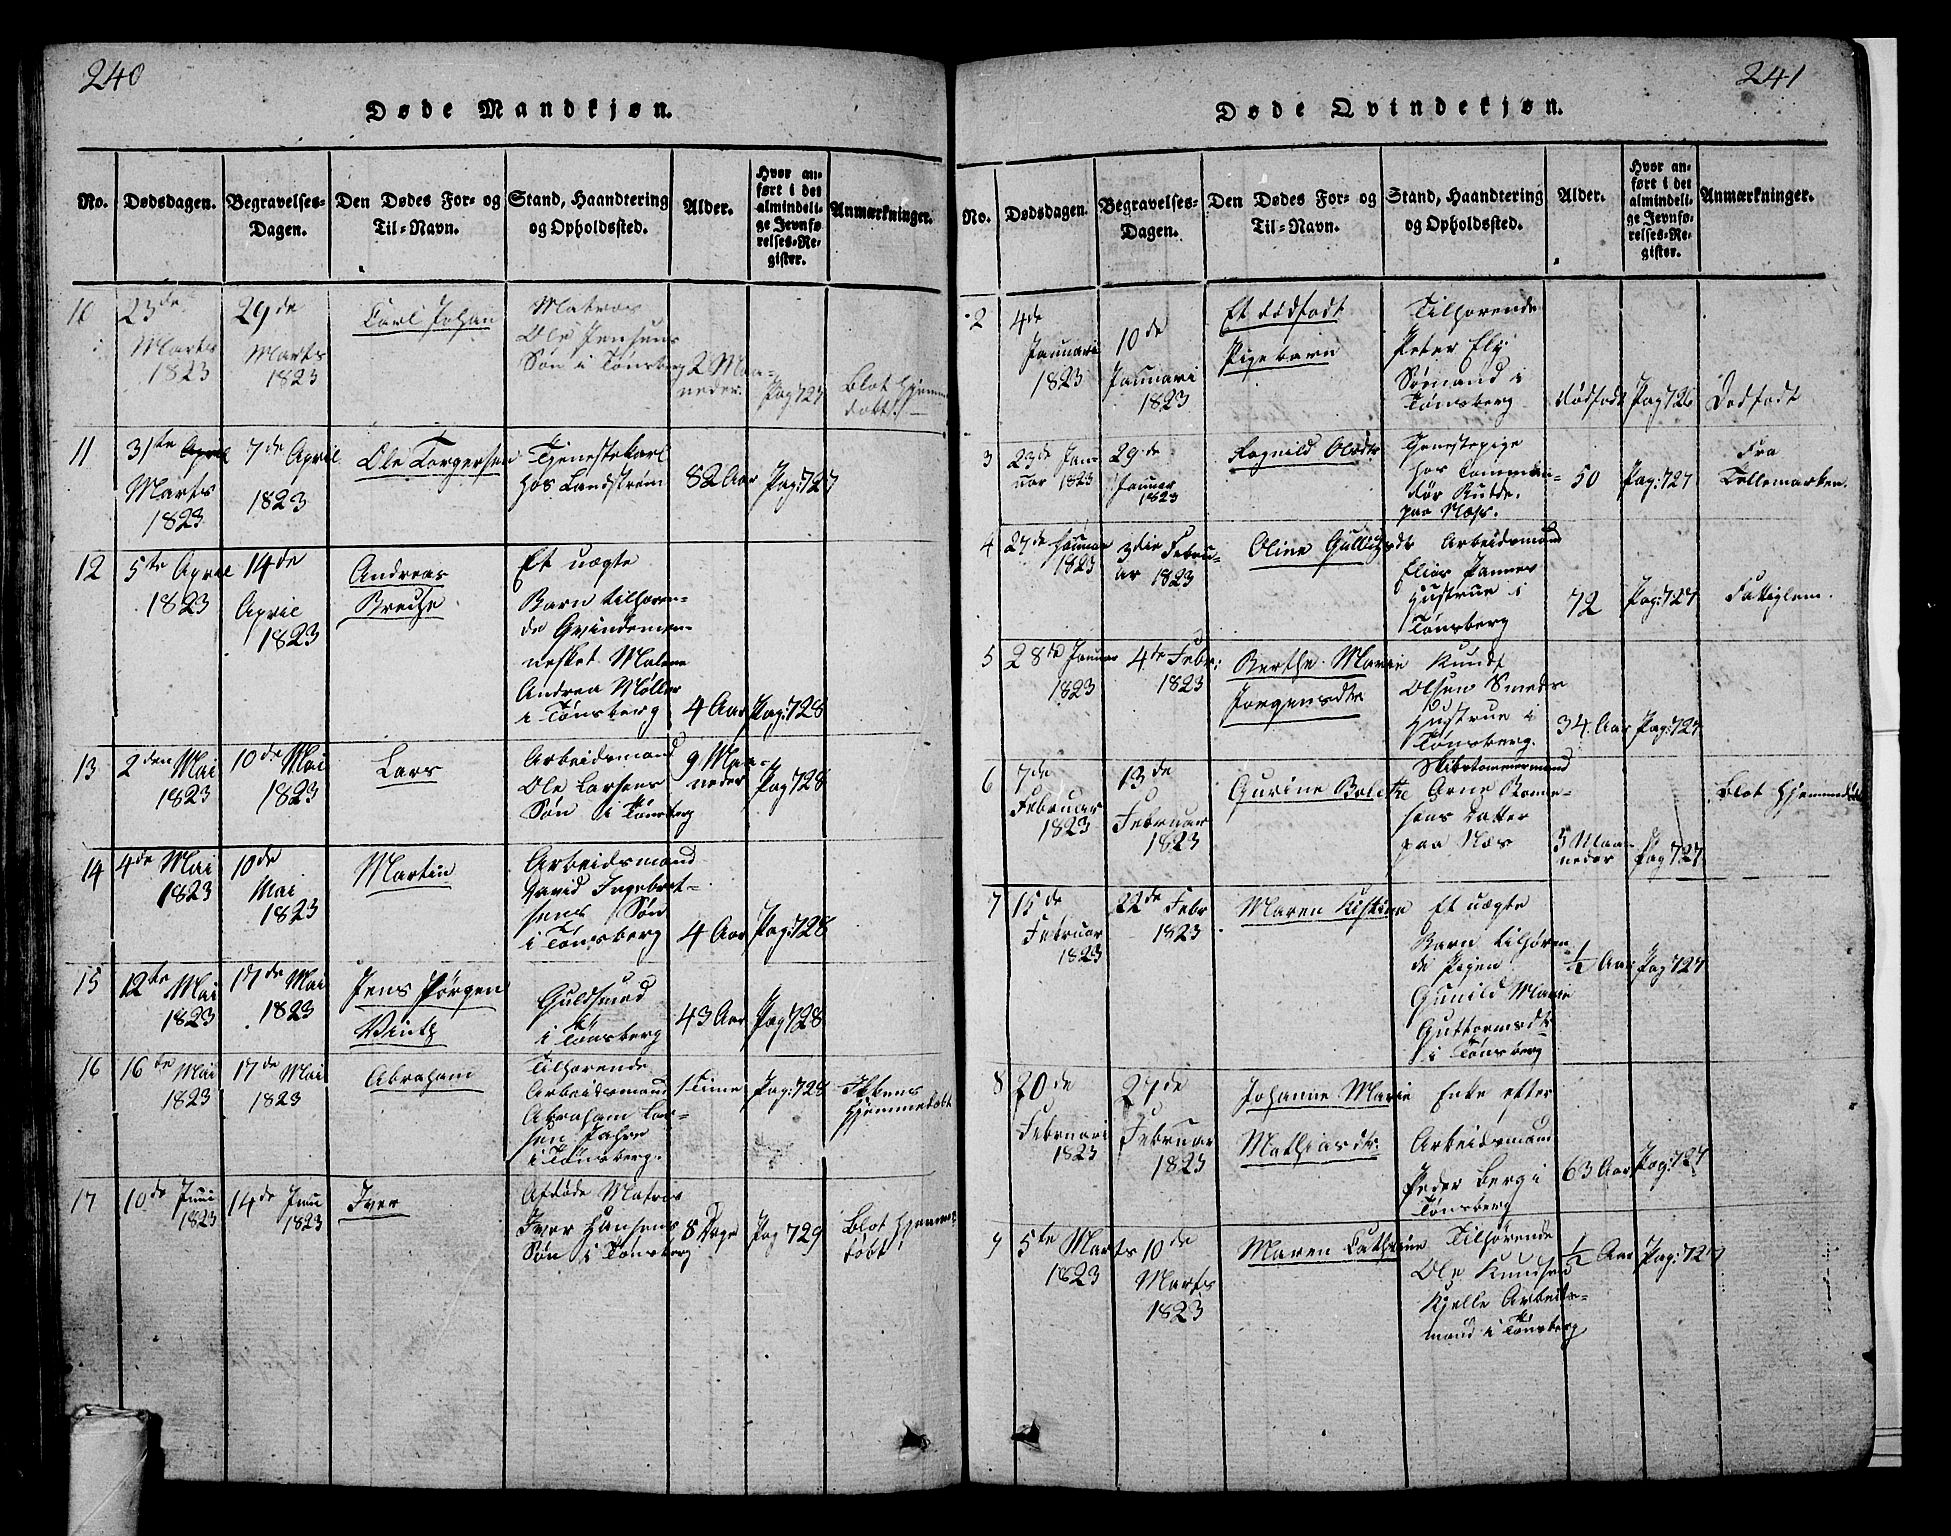 240
Døde Mandkjøn.
No.
Dødsdagen.
Begravelses-
Dagen.
Den Dødes For- og
Til-Navn.
Stand, Haandtering
og Opholdssted.
Alder.
Hvor an-
ført i det
almindeli-
ge Jevnfø-
relses-Re-
gister.
Anmærkninger.
10
23de
Marts
1823
29de
Marts
1823
Carl Johan
Matros
Ole Jensens
Søn i Tønsberg
2 Maa-
neder.
Pag 727
Blot hjemme
døbt
11
31te April
Marts
1823
7de April
1823
Ole Torgersen
Tjenestekarl
hos Landstrøm
82 Aar
Pag: 727
12
5te April
1823
14de
April
1823
Andreas
Breche
Et uægte
Barn tilhøren-
de Qvindemen-
nesket Malene
Andrea Møller
i Tønsberg
4 Aar
Pag: 728
13
2den Mai
1823
10de Mai
1823
Lars
Arbeidsmand
Ole Larsens
Søn i Tønsberg
9 Maa-
neder
Pag 728
14
4de Mai
1823
10de
Mai
1823
Martin
Arbeidsmand
David Ingebret-
sens Søn
i Tønsberg
4 Aar
Pag: 728
15
12te Mai
1823
17de Mai
1823
Jens Jørgen
Vintz
Guldsmed
i Tønsberg
43 Aar
Pag 728
16
16te Mai
1823
17de Mai
1823
Abraham
Tilhørende
Arbeidsmand
Abraham Lar-
sen
i Tønsberg.
1 Time
Pag: 728
Hjemmedøbt
17
10de Juni
1823
14de Juni
1823
Iver
Afdøde Matros
Iver Hansens
Søn i Tønsberg
8 Dage
Pag 729
Blot hjemme
døbt
241
Døde Qvindekjøn.
No.
Dødsdagen.
Begravelses-
Dagen.
Den Dødes For- og
Til-Navn.
Stand, Haandtering
og Opholdssted.
Alder.
Hvor an-
ført i det
almindeli-
ge Jevnfø-
relses-Re-
gister.
Anmærkninger.
2
4de
Januari
1823
10de
Januari
1823
Et dødfødt
Pigebarn
Tilhørende
Peter Ely
Sømand i
Tønsberg
dødfødt
Pag 726
Dødfødt
3
23de Jan-
uar 1823
29de
Januar
1823
Ragnild Olsdtr
Tjenestepige
hos Comman-
dør Budde.
paa Næss.
50
Pag: 727
Fra
Tellemarken.
4
27de Januar
1823
3die Febru-
ar 1823
Oline
Arbeidsmand
Elias
Hustrue i
Tønsberg
72
Pag: 727
Fattiglem.
5
28de Januar
1823
4de Febr:
1823
Berthe Marie
Jørgensdtr
Knud
Olsen Smeds
Hustrue i
Tønsberg.
34 Aar
Pag: 727
6
7de
Februar
1823
13de
Februar
1823
Gurine
Skibstømmermand
Arne
sens Datter
paa Næs
5 Maa-
neder
Pag 727
Blot hjemmedøbt
7
15de
Februar
1823
22de Febr
1823
Maren Kistine
Et uægte
Barn tilhøren-
de Pigen
Gunild Marie
Guttormsdtr
i Tønsberg
1/2 Aar
Pag 727
8
20de
Februari
1823
27de
Februar
1823
Johanne Marie
Mathiasdtr.
Enke efter
Arbeidsmand
Peder Berg i
Tønsberg
63 Aar
Pag: 727
9
5te Marts
1823
10de
Marts
1823
Maren Cathrine
Tilhørende
Ole Knudsen
Kjelle Arbeids-
mand i Tønsberg
1/2 Aar
Pag: 727